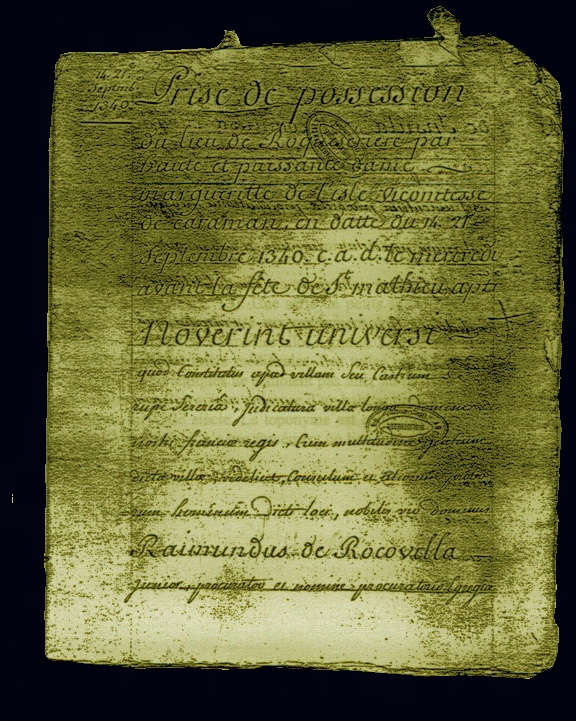 14. 21e
Septemb.
1340.
Prise de possession
du lieu de Roqueseriere par
haute et puissante dame
marguerite de Lisle, vicomtesse
de caraman, en datte du 14. 21e
Septembre 1340. c. a. d. le mercredi
avant la fête de St. mathieu apti
Noverint universi
quod Constitutus apud villam seu Castrum
rupe sereria, Judicatura villa longa
nostri francia regis, Cum multitudine
dicta villa videlicet, Consulum et aliorum
rum hominum dicti loci, nobilis vir dominus
Raimundus de Rocovilla
junior, procurator et nomine procuratorio